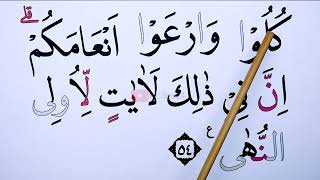 كُلُوْا وَارْعَوْا اَنْعَامَكُمْ ۗ
اِنَّ فِيْ ذٰلِكَ لَاٰيٰتٍ لِّاُولِى
النُّهٰى ࣖ ٥٤